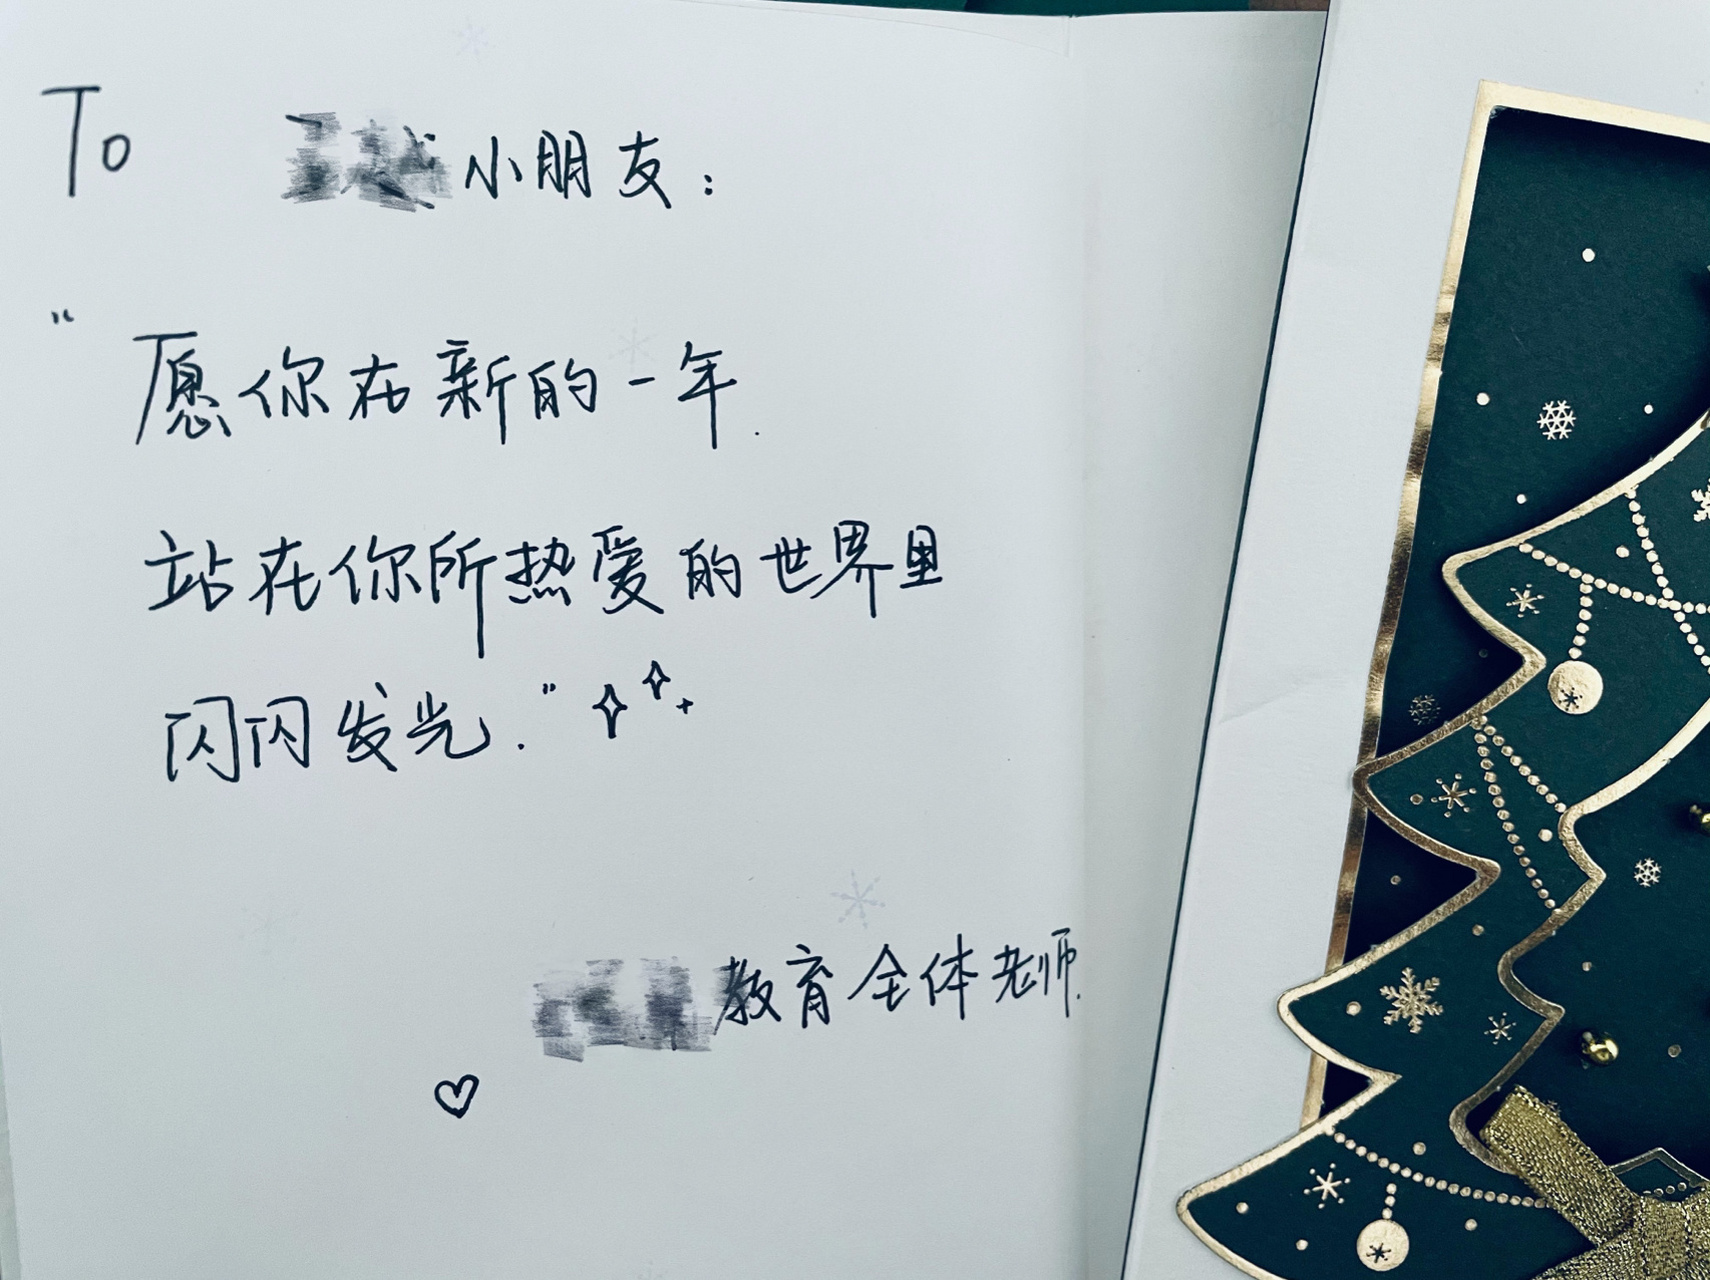 To 小朋友：
“愿你在新的一年.
站在你所热爱的世界里
闪闪发光.”
教育全体老师.